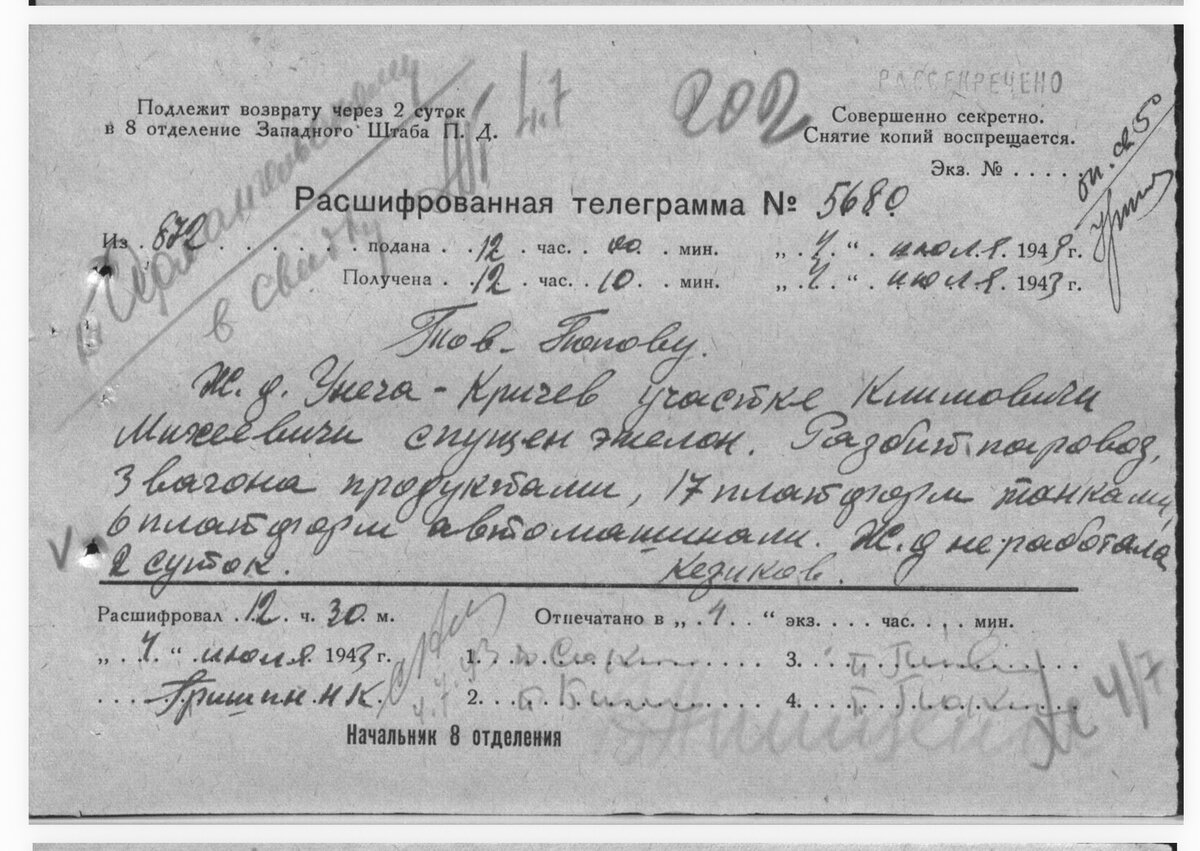 РАССЕКРЕЧЕНО
202
4.7
Подлежит возврату через 2 суток
в 8 отделение Западного Штаба П. Д.
Совершенно секретно.
Снятие копий воспрещается.
Экз. № . . . . .
Расшифрованная телеграмма № 5680
Из . 872 . . . . . . . подана . 12 . час. 00 . мин. „ . 4 . “ . июля . 1943 г.
Получена . 12 . час. 10 . мин. „ . 4 . “ . июля . 1943 г.
в сводку
Тов. Попову.
Ж. д. Унеча - Кричев участке Климовичи
Михеевичи спущен эшелон. Разбит паровоз,
3 вагона продуктами, 17 платформ танками,
6 платформ автомашинами. Ж.д не работала
2 суток. Кезиков.
Расшифровал . 12 . ч. 30 . м. Отпечатано в „ . 4 . . “ экз. . . . час. . . . мин.
„ . 4 . “ июля 1943 г. 1. 3.
Гришин Н К. 2. 4.
4/7
Начальник 8 отделения